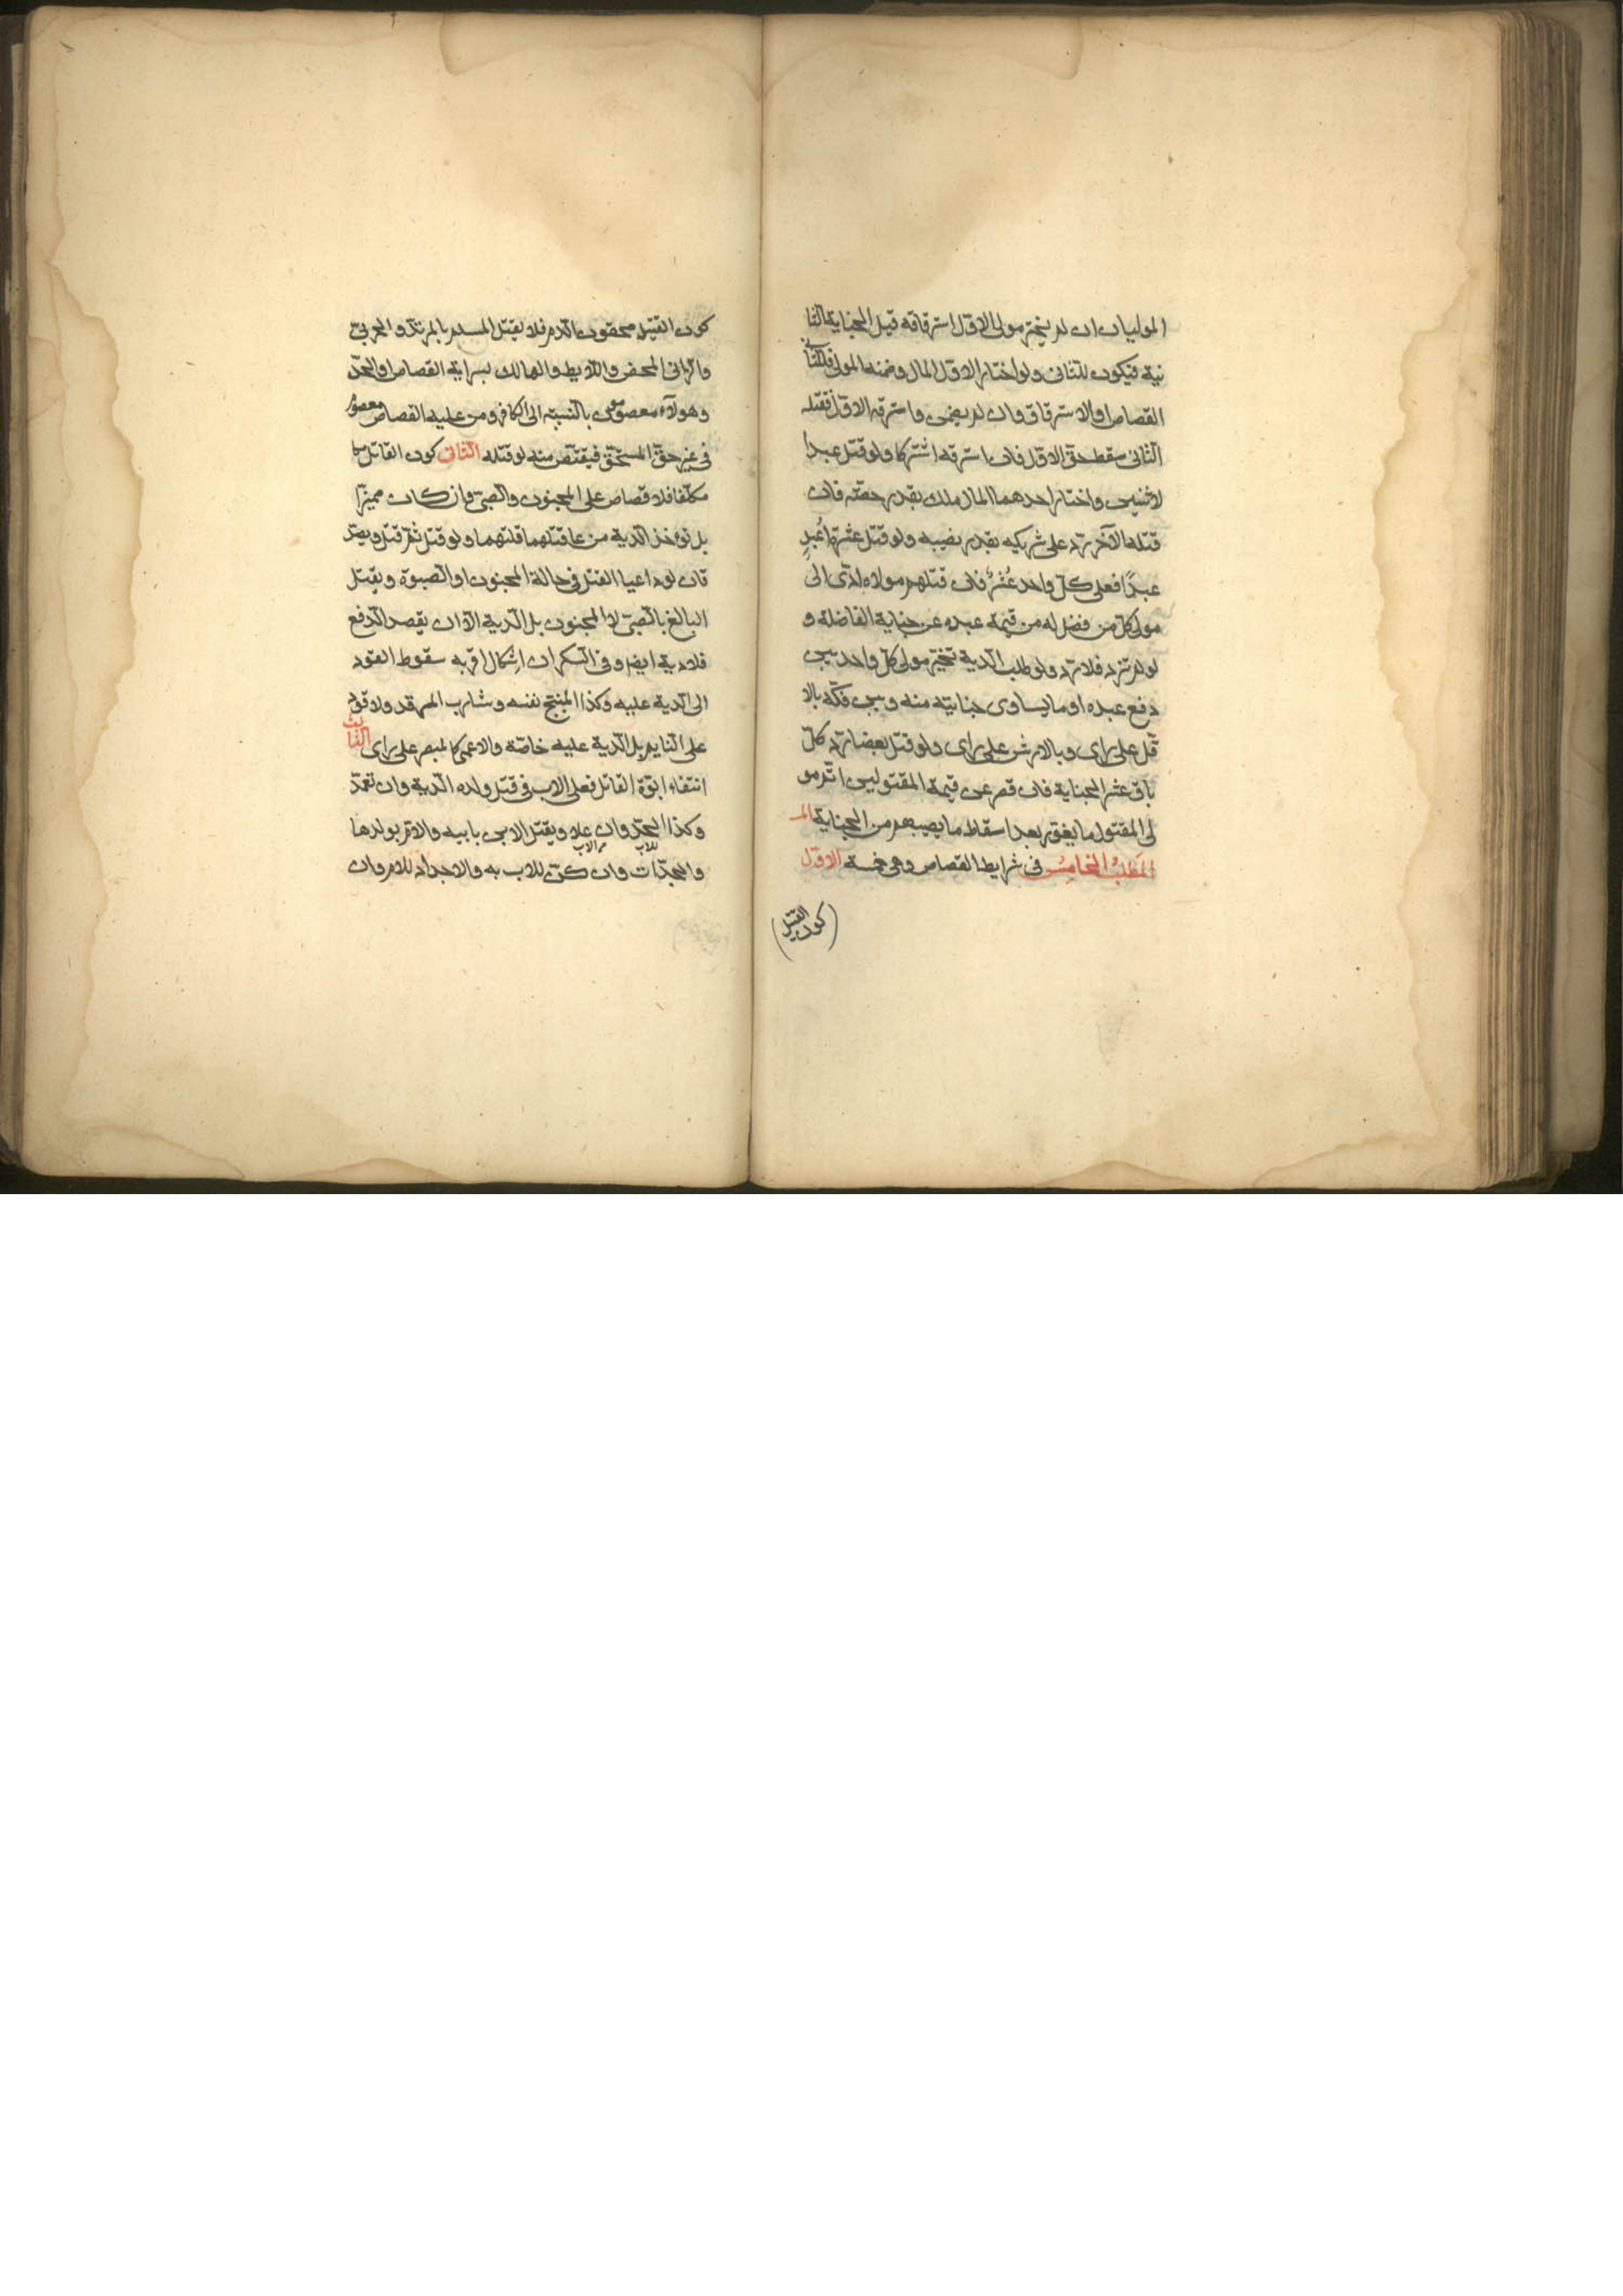 الموليان ان لم يختر مولى الاول استرقاقه قبل الجناية الثا
نية فيكون للثانى ولو اختار الاول المال وضمنه المولى فللثانى
القصاص او الاسترقاق وان لم يضمن واسترقه الاول فقتله
الثانى سقط حق الاول فان استرقه اشتركا ولو قتل عبدا
لاثنين واختار احدهما المال ملك بقدر حصته فان
قتله الآخر رد على شريكه بقدر نصيبه ولو قتل عشرة اعبد
عبدًا فعلى كل واحد عُشرٌ فان قتلهم مولاه ادّى الى
مولى كل من فضل له من قيمة عبده عن جناية الفاضلة و
لو لم تزد فلا رد ولو طلب الدية تخير مولى كل واحد بين
دفع عبده او ما يساوى جنايته منه وبين فكه بالا
قل على راى وبالارش على راى ولو قتل بعضا رد كل
باق عشر الجناية فان قصر عن قيمة المقتولين اتم مو
لى المقتول ما يعوز بعد اسقاط ما يصيبهم من الجناية
المَطلبُ الخامِسُ فى شرايط القصاص وهى خمسة الاول
(كون القتيل)
كون القتيل محقون الدم فلا يقتل المسلم بالمرتد والحربى
والزانى المحض واللايط والهالك بسراية القصاص او الحد
وهولآء معصومون بالنسبة الى الكافر ومن عليه القصاص معصوم
فى غير حق المستحق فيقتص منه لو قتله الثانى كون القاتل
مكلفا فلا قصاص على المجنون والصبى وان كان مميزا
بل تؤخذ الدية من عاقلتهما ولو قتل ثم جن قتل ويصد
قان لو داعيا القتل فى حالة المجنون او الصبوة ويقتل
البالغ بالصبى لا المجنون بل الدية الا ان يقصد الدفع
فلا دية ايضا وفى السكران اشكال اقربه سقوط القود
الى الدية عليه وكذا المبنج نفسه وشارب المرقد ولا قود
على النايم بل الدية عليه خاصة والاعمى كالمبصر على راى الثالث
انتفاء ابوة القاتل فعلى الاب فى قتل ولده الدية وان تعمد
وكذا الجد وان علا ويقتل الابن بابيه والام بولدها
والجدات وان كن للاب به والاجداد للام وان